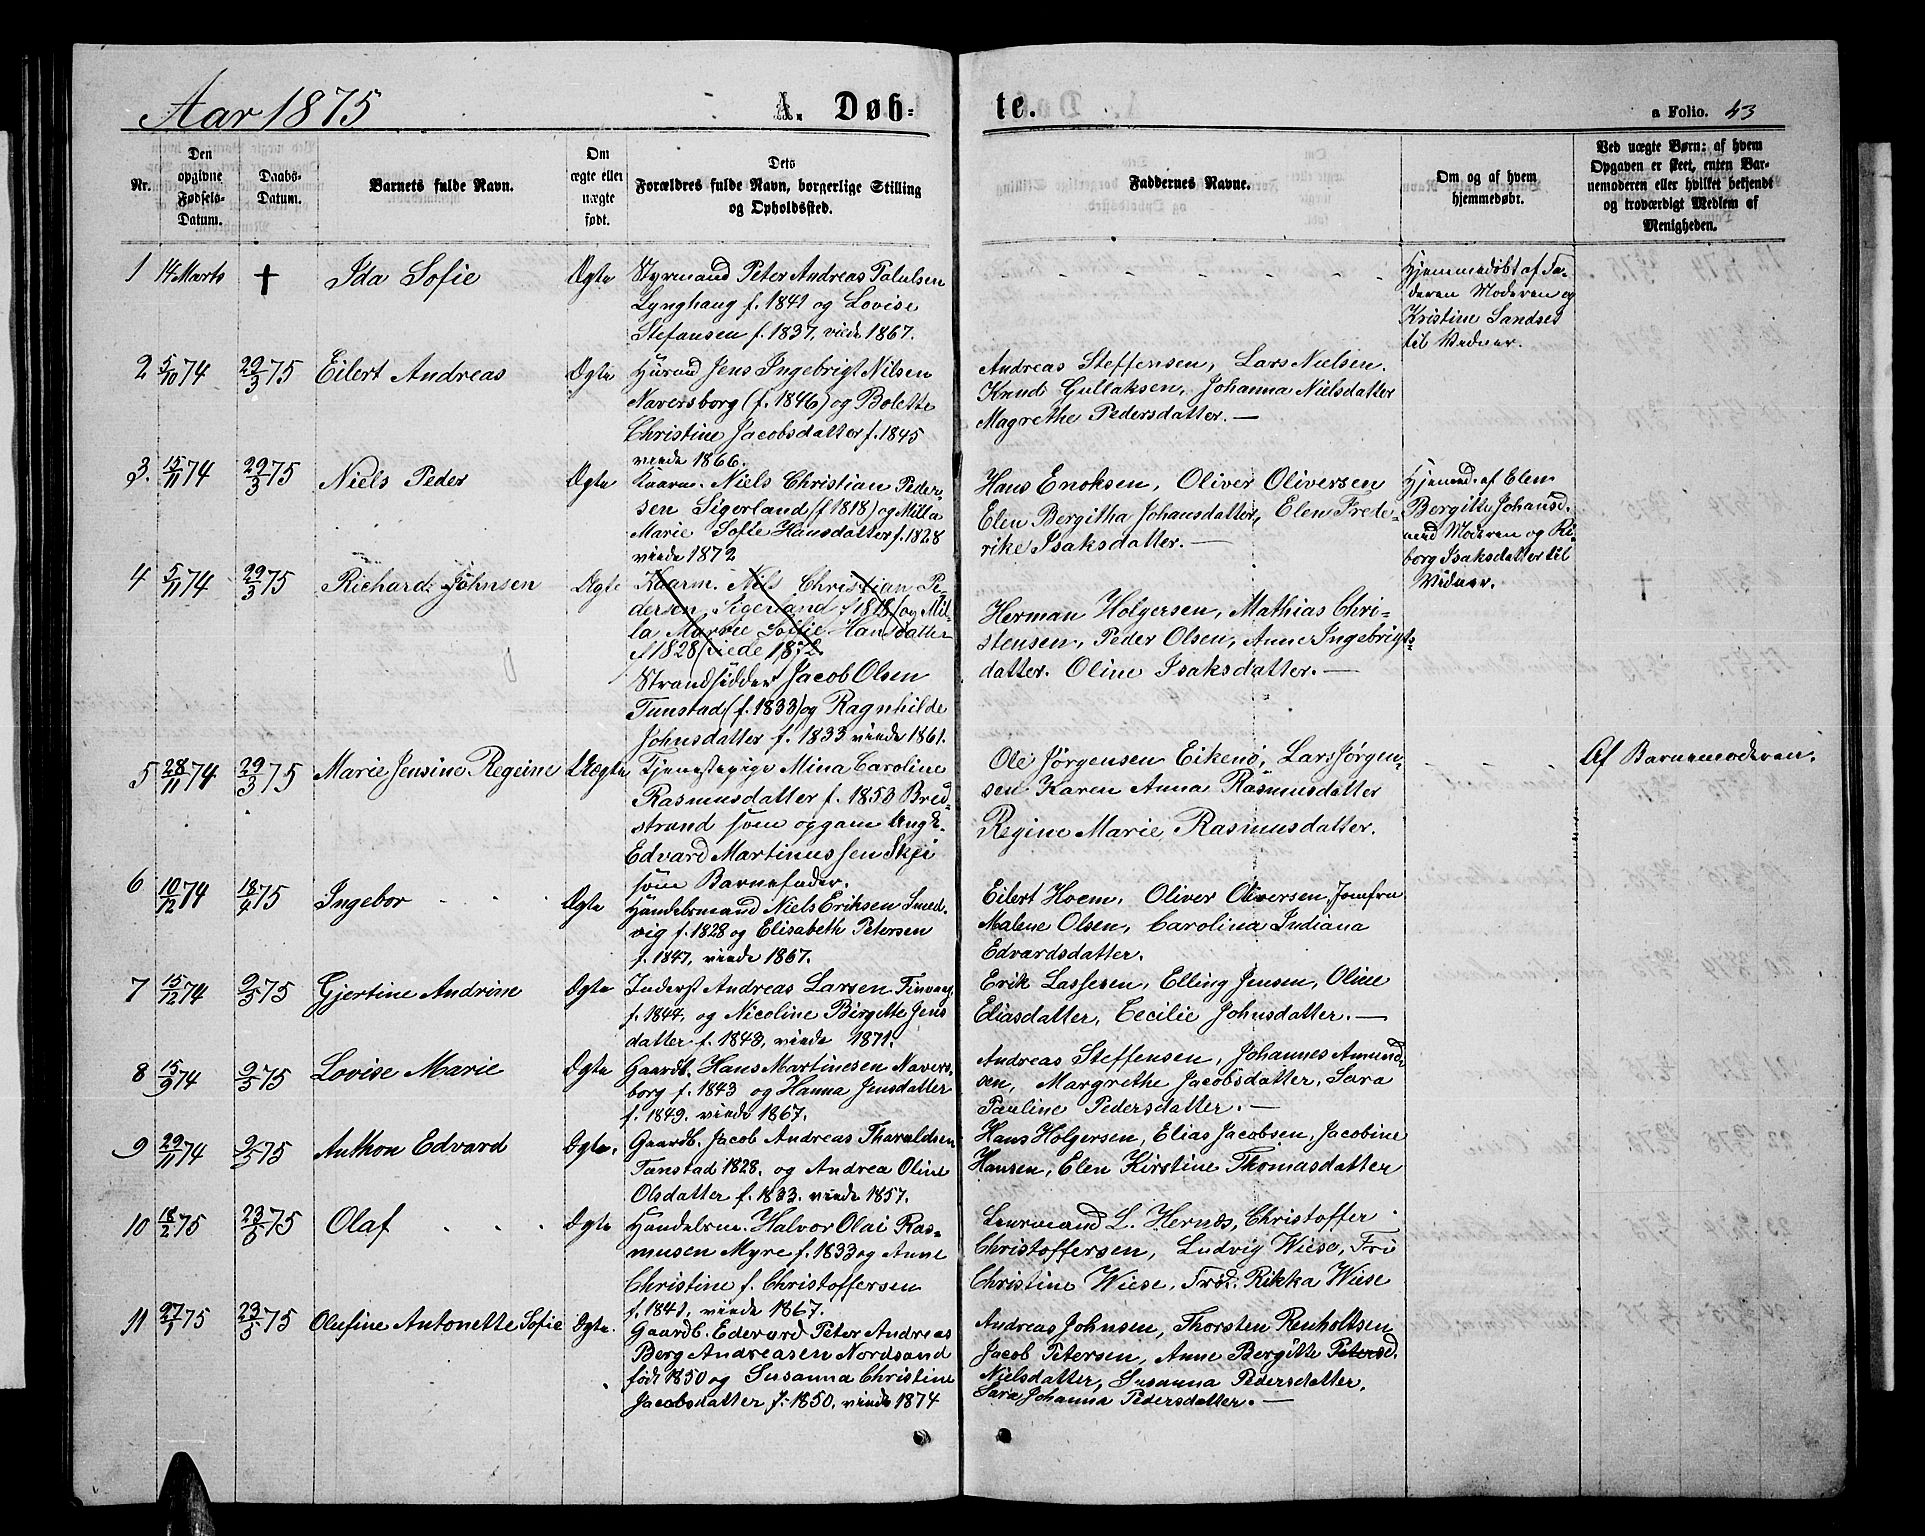 Aar 1875
A. Døb-
te.
a Folio. 43
Nr.
Den
opgivne
Fødsels-
Datum.
Daabs-
Datum.
Barnets fulde Navn.
Om
ægte eller
uægte
født.
Dets
Forældres fulde Navn, borgerlige Stilling
og Opholdssted.
Faddernes Navne.
Om og af hvem
hjemmedøbt.
Ved uægte Børn: af hvem
Opgaven er skeet, enten Bar-
nemoderen eller hvilket bekjendt
og troværdigt Medlem af
Menigheden.
1 14 Marts † Ida Sofie Ægte
Styrmand Peter Andreas Paulsen
Lynghaug f. 1841 og Lovise
Stefansen f. 1837, viede 1867.
Hjemmedøbt af Fa-
deren Moderen og
Kristine Sandses
til Vidner.
2 5/10 74 29/3 75 Eilert Andreas Ægte
Huusmd Jens Ingebrigt Nilsen
Naversborg (f. 1846) og Bolette
Christine Jacobsdatter f. 1845
viede 1866.
Andreas Steffensen, Lars Nielsen.
Knud Gullaksen, Johanna Nielsdatter
Magrethe Pedersdatter. —
3. 15/11 74 29/3 75 Niels Peder Ægte
Kaarm. Niels Christian Peder-
sen Sigerland (f 1818) og Milla
Marie Sofie Hansdatter f. 1828
viede 1872
Hans Enoksen, Oliver Oliversen
Elen Bergitha Johansdatter, Elen Frede-
rike Isaksdatter. —
Hjemmed. af Elen
Bergitte Johansd.
med Moderen og Ri-
borg Isaksdatter til
Vidner.
4 5/11 74 29/3 75 Richard Johnsen Ægte
Kaarm. Nils Christian Pe-
dersen, Sigerland f 1818 (og Mil-
la Marie Sofie Hansdatter
f 1828 (viede 1872
Strandsidder Jacob Olsen
Tunstad (f. 1833) og Ragnhilde
Johnsdatter f. 1833 viede 1861.
Herman Holgersen, Mathias Chri-
stensen, Peder Olsen, Anne Ingebrigts-
datter. Oline Isaksdatter. —
5 28/11 74 29/3 75 Marie Jensine Regine Uægte
Tjenestepige Mina Caroline
Rasmusdatter f. 1853 Bred-
strand som opgav Ungk.
Edvard Martinussen Skjei
som Barnefader.
Ole Jørgensen Eikenø, Lars Jørgen-
sen Karen Anna Rasmusdatter
Regine Marie Rasmusdatter.
Af Barnemoderen.
6 10/12 74 18/4 75 Ingebor Ægte
Handelsmand Niels Eriksen Smed-
vig f. 1828 og Elisabeth Petersen
f. 1847, viede 1867.
Eilert Hoem, Oliver Oliversen, Jomfru
Malene Olsen, Carolina Indiana
Edvardsdatter.
7 15/12 74 9/5 75 Gjertine Andrine Ægte
Inderst Andreas Larsen Finvaag
f. 1844, og Nicoline Birgitte Jens
datter f. 1843, viede 1871.
Erik Lassesen, Elling Jensen, Oline
Eliasdatter, Cecilie Johnsdatter. —
8 15/9 74 9/5 75 Lovise Marie Ægte
Gaardb. Hans Martinesen Navers-
borg f. 1843 og Hanna Jensdatter
f. 1849. viede 1867.
Andreas Steffensen, Johannes Amund-
sen, Margrethe Jacobsdatter, Sara
Pauline Pedersdatter. —
9 29/11 74 9/5 75 Anthon Edvard Ægte.
Gaardb. Jacob Andreas Tharaldsen
Tunstad 1828. og Andrea Oline
Olsdatter f. 1833. viede 1857.
Hans Holgersen, Elias Jacobsen, Jacobine
Hansen, Elen Kirstine Thomasdatter
10 18/2 75 23/5 75 Olaf Ægte
Handelsm. Halvor Olai Ras-
musen Myre f. 1833 og Anne
Christine f. Christoffersen
f. 1841, viede 1867.
Leurmand L. Hernes, Christoffer
Christoffersen, Ludvig Wiese, Fru
Christine Wiese, Frøk. Rikka Wiese
11 27/1 75 23/5 75 Olufine Antonette Sofie Ægte.
Gaardb. Edevard Peter Andreas
Berg Andreasen Nordsand
født 1850 og Susanna Christine
Jacobsdatter, f. 1850, viede 1874
Andreas Johnsen, Thorsten Renholtsen
Jacob Petersen, Anne Bergitte Petersd.
Nielsdatter, Susanna Pedersdatter,
Sara Johanna Pedersdatter. —